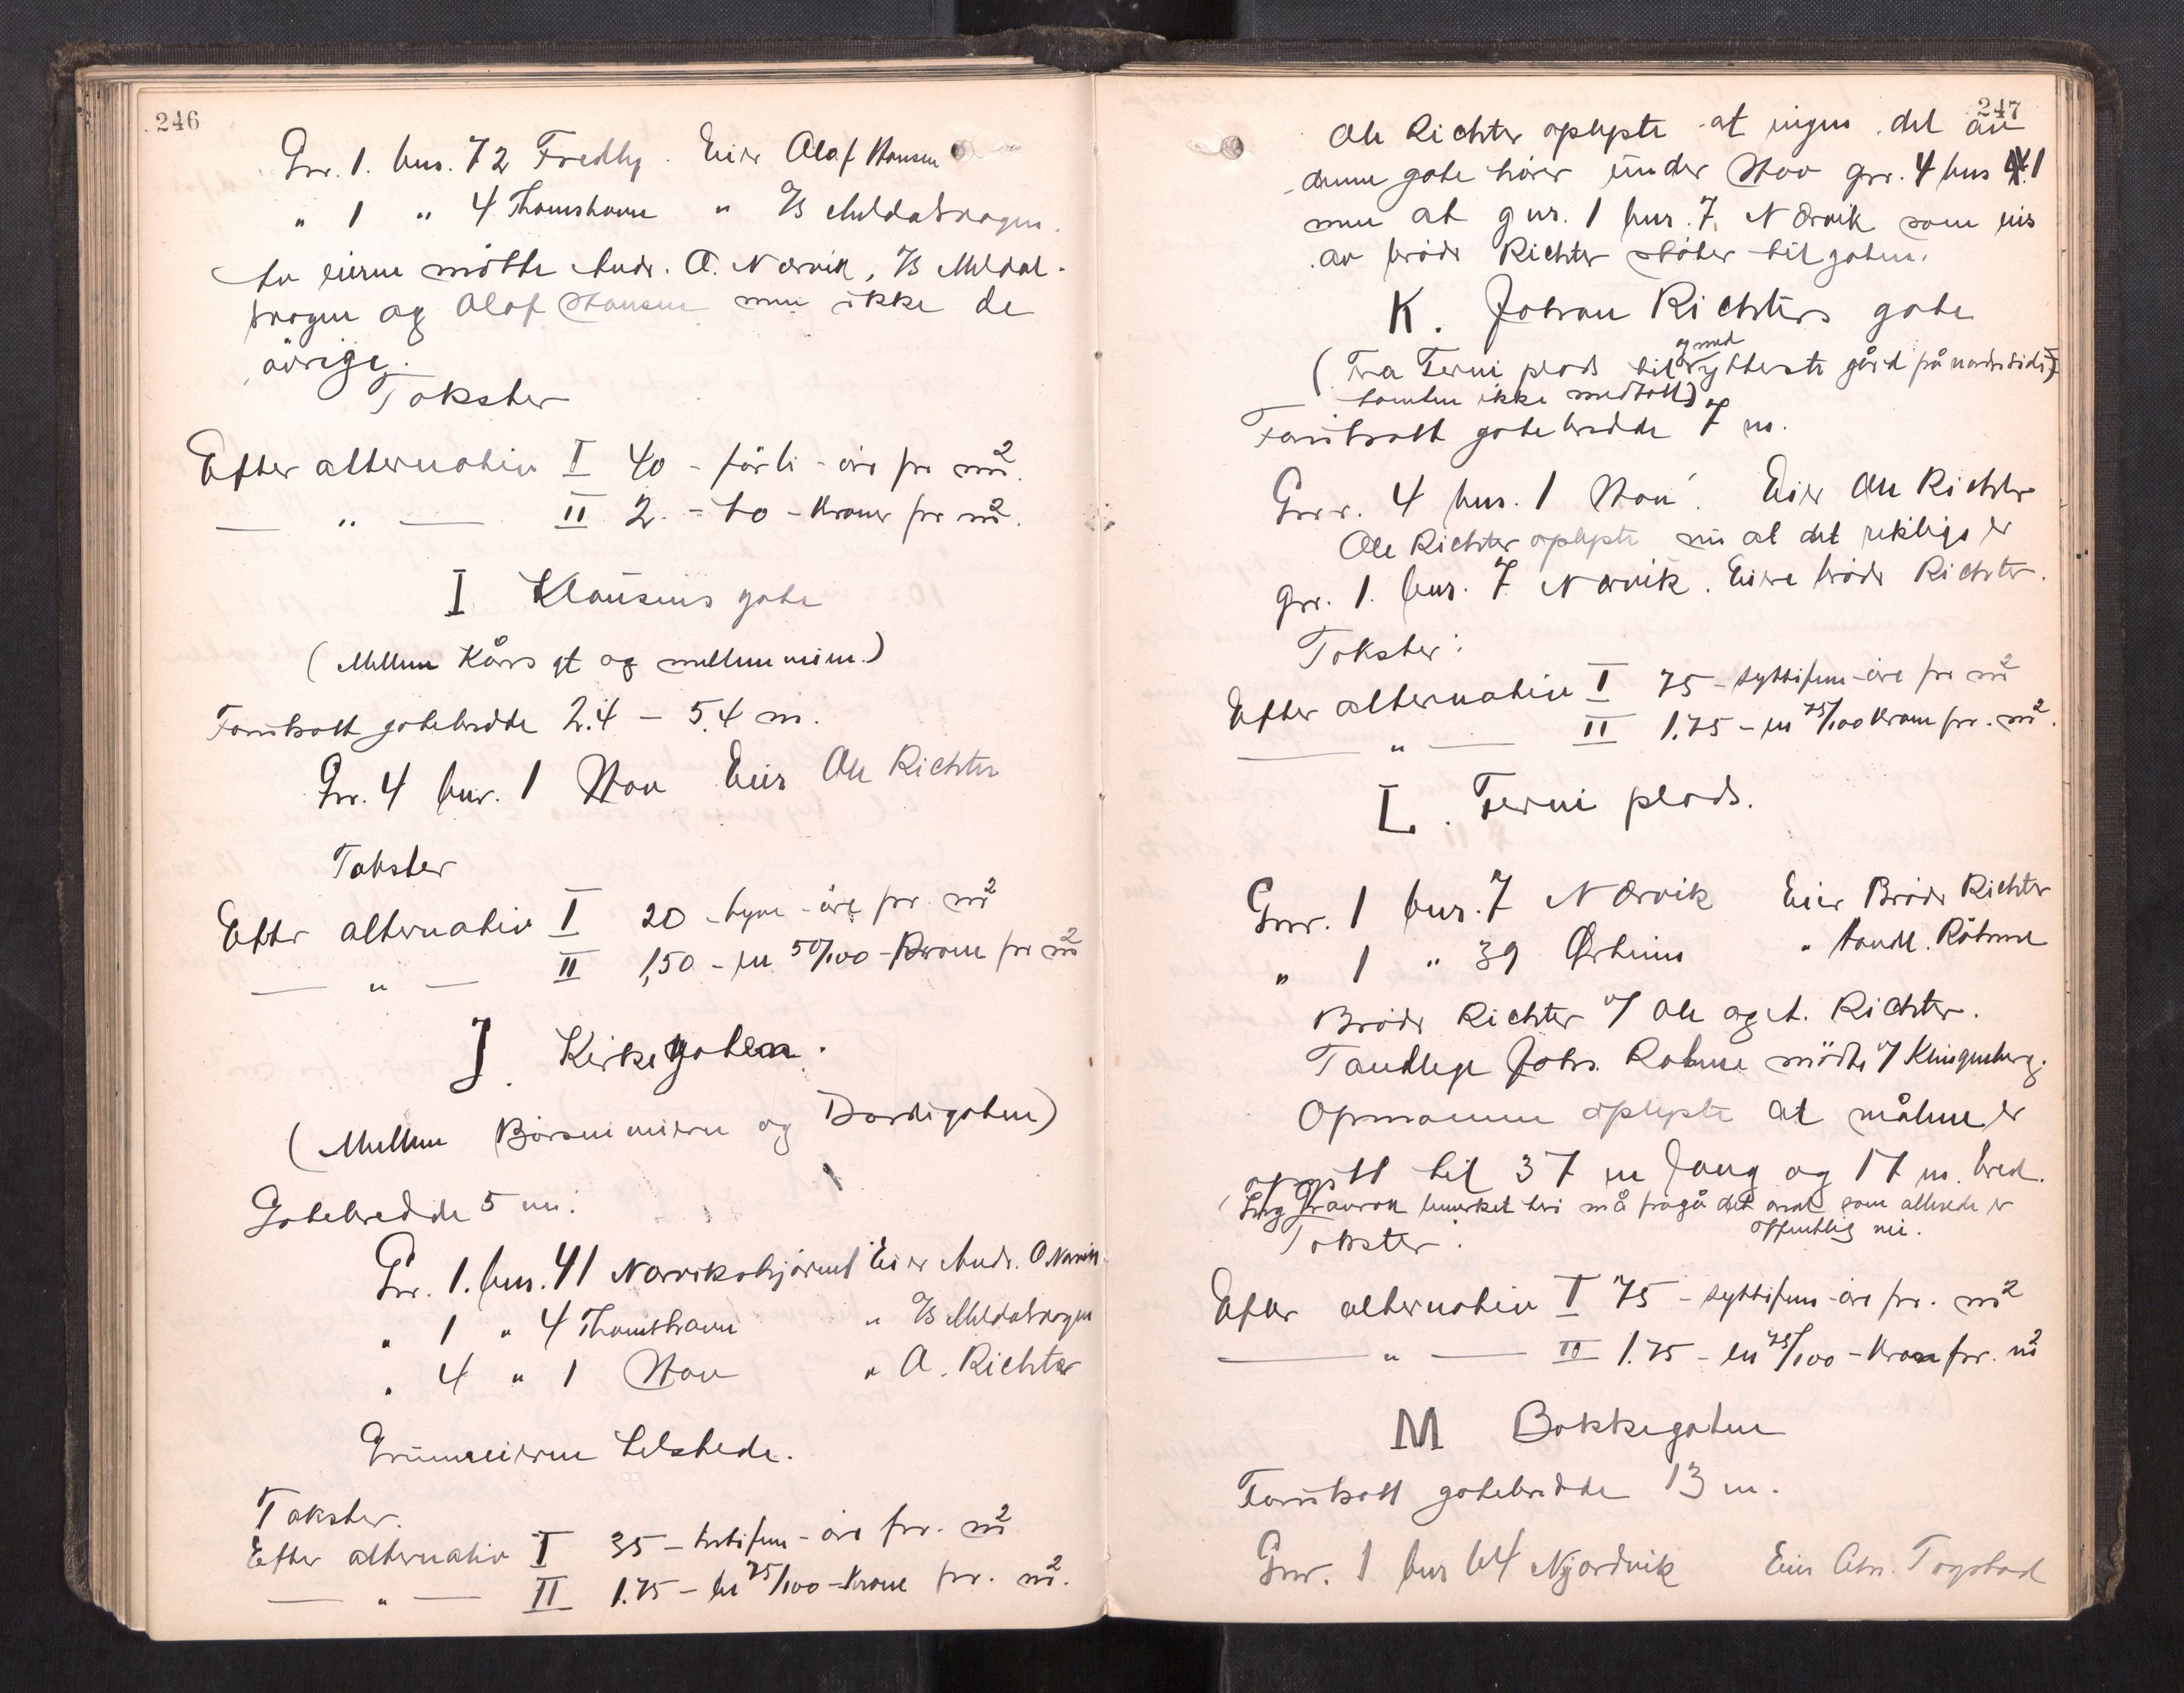 246
Gnr. 1. bnr. 72 Fredly. Eier Olaf Hansen
" 1 " 4 Thomshavn " I/S Meldalskogen.
Av eierne møtte Andr. O. Nervik, I/S Meldal-
skogen og Olaf Hansen men ikke de
øvrige.
Takster
Efter alternativ I 40 - førti - øre pr m²
— " — II 2. - to - Kroner pr m².
I Klausens gate
(Mellem Kårs gt og mellemmien.)
Forutsatt gatebredde 2.4 - 5.4 m.
Gnr. 4 bnr. 1 Hou Eier Ole Richter
Takster
Efter alternativ I 20 - tyve - øre pr. m²
— " — II 1,50 - en 50/100 - Krone pr m²
J. Kirkegaten.
(Mellem og Dardigaten)
Gatebredde 5 m.
Gnr. 1. bnr. 41 Nervikshjørnet Eier Andr. O. Nervik.
" 1 " 4 Thomshavn " I/S Meldalskogen
" 4 " 1 Hou " O. Richter
Grunneierne tilstede.
Takster.
Efter alternativ I 35 - trettifem - øre pr. m²
— " — II 1.75 - en 75/100 - Krone pr. m².
247
Ole Richter oplyste at ingen del av
denne gate hører under Hou gnr. 4 bnr 1
men at gnr. 1 bnr. 7. Nervik som eies
av brødr Richter støter til gaten.
K. Johan Richters gate
(Fra Torvi plads til og med ytterste gård på nordsiden,
tomten ikke medtatt)
Forutsatt gatebredde 7 m.
Gnr. 4 bnr. 1 Hou. Eier Ole Richter
Ole Richter oplyste nu at det riktige er
gnr. 1. bnr. 7 Nervik. Eiere brødr Richter.
Takster:
Efter alternativ I 75 - syttifem - øre pr m²
— " — II 1.75 - en 75/100 Krone pr. m².
L. Torvi plads.
Gnr. 1 bnr. 7 Nervik Eier Brødr Richter
" 1 " 39 Ørheim " tandl. Røhme
Brødr Richter v/ Ole og A. Richter.
Tandlege Johs. Røhme møtte v/ Klingenberg.
Opmannen oplyste at målene er
opgitt til 37 m lang og 17 m. bred.
bemerket heri må fragå det areal som allerede er
offentlig vei.
Takster:
Efter alternativ I 75 - syttifem - øre pr. m²
— " — II 1.75 - en 75/100 - Krone pr. m²
M Bakkegaten
Forutsatt gatebredde 13 m.
Gnr. 1 bnr 64 Njordvik Eier Chr. Togstad